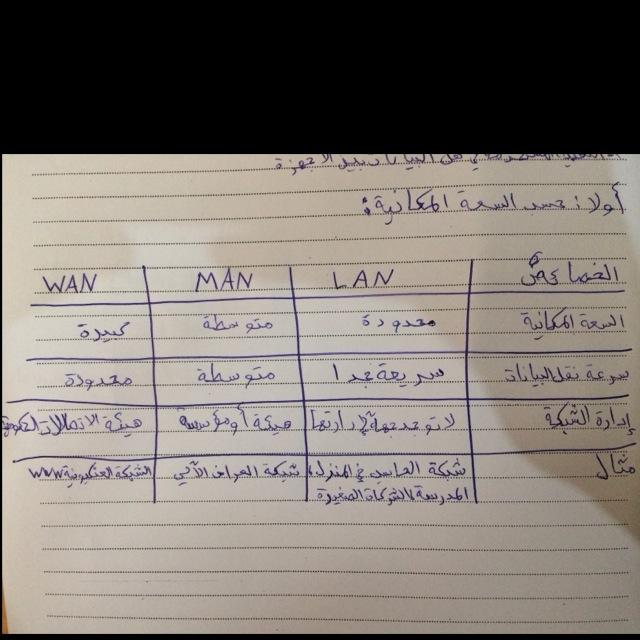 البيانات بين الأجهزة
أولا: حسب السعة المكانية:
الخصائص LAN MAN WAN
السعة المكانية محدودة متوسطة كبيرة
سرعة نقل البيانات سريعة جدا متوسطة محدودة
إدارة الشبكة لا توجد جهة لإدارتها هيئة أو مؤسسة هيئة الاتصالات الحكومية
مثال شبكة الحاسب في المنزل، شبكة الصراف الآلي الشبكة العنكبوتية www
المدرسة، الشركات الصغيرة